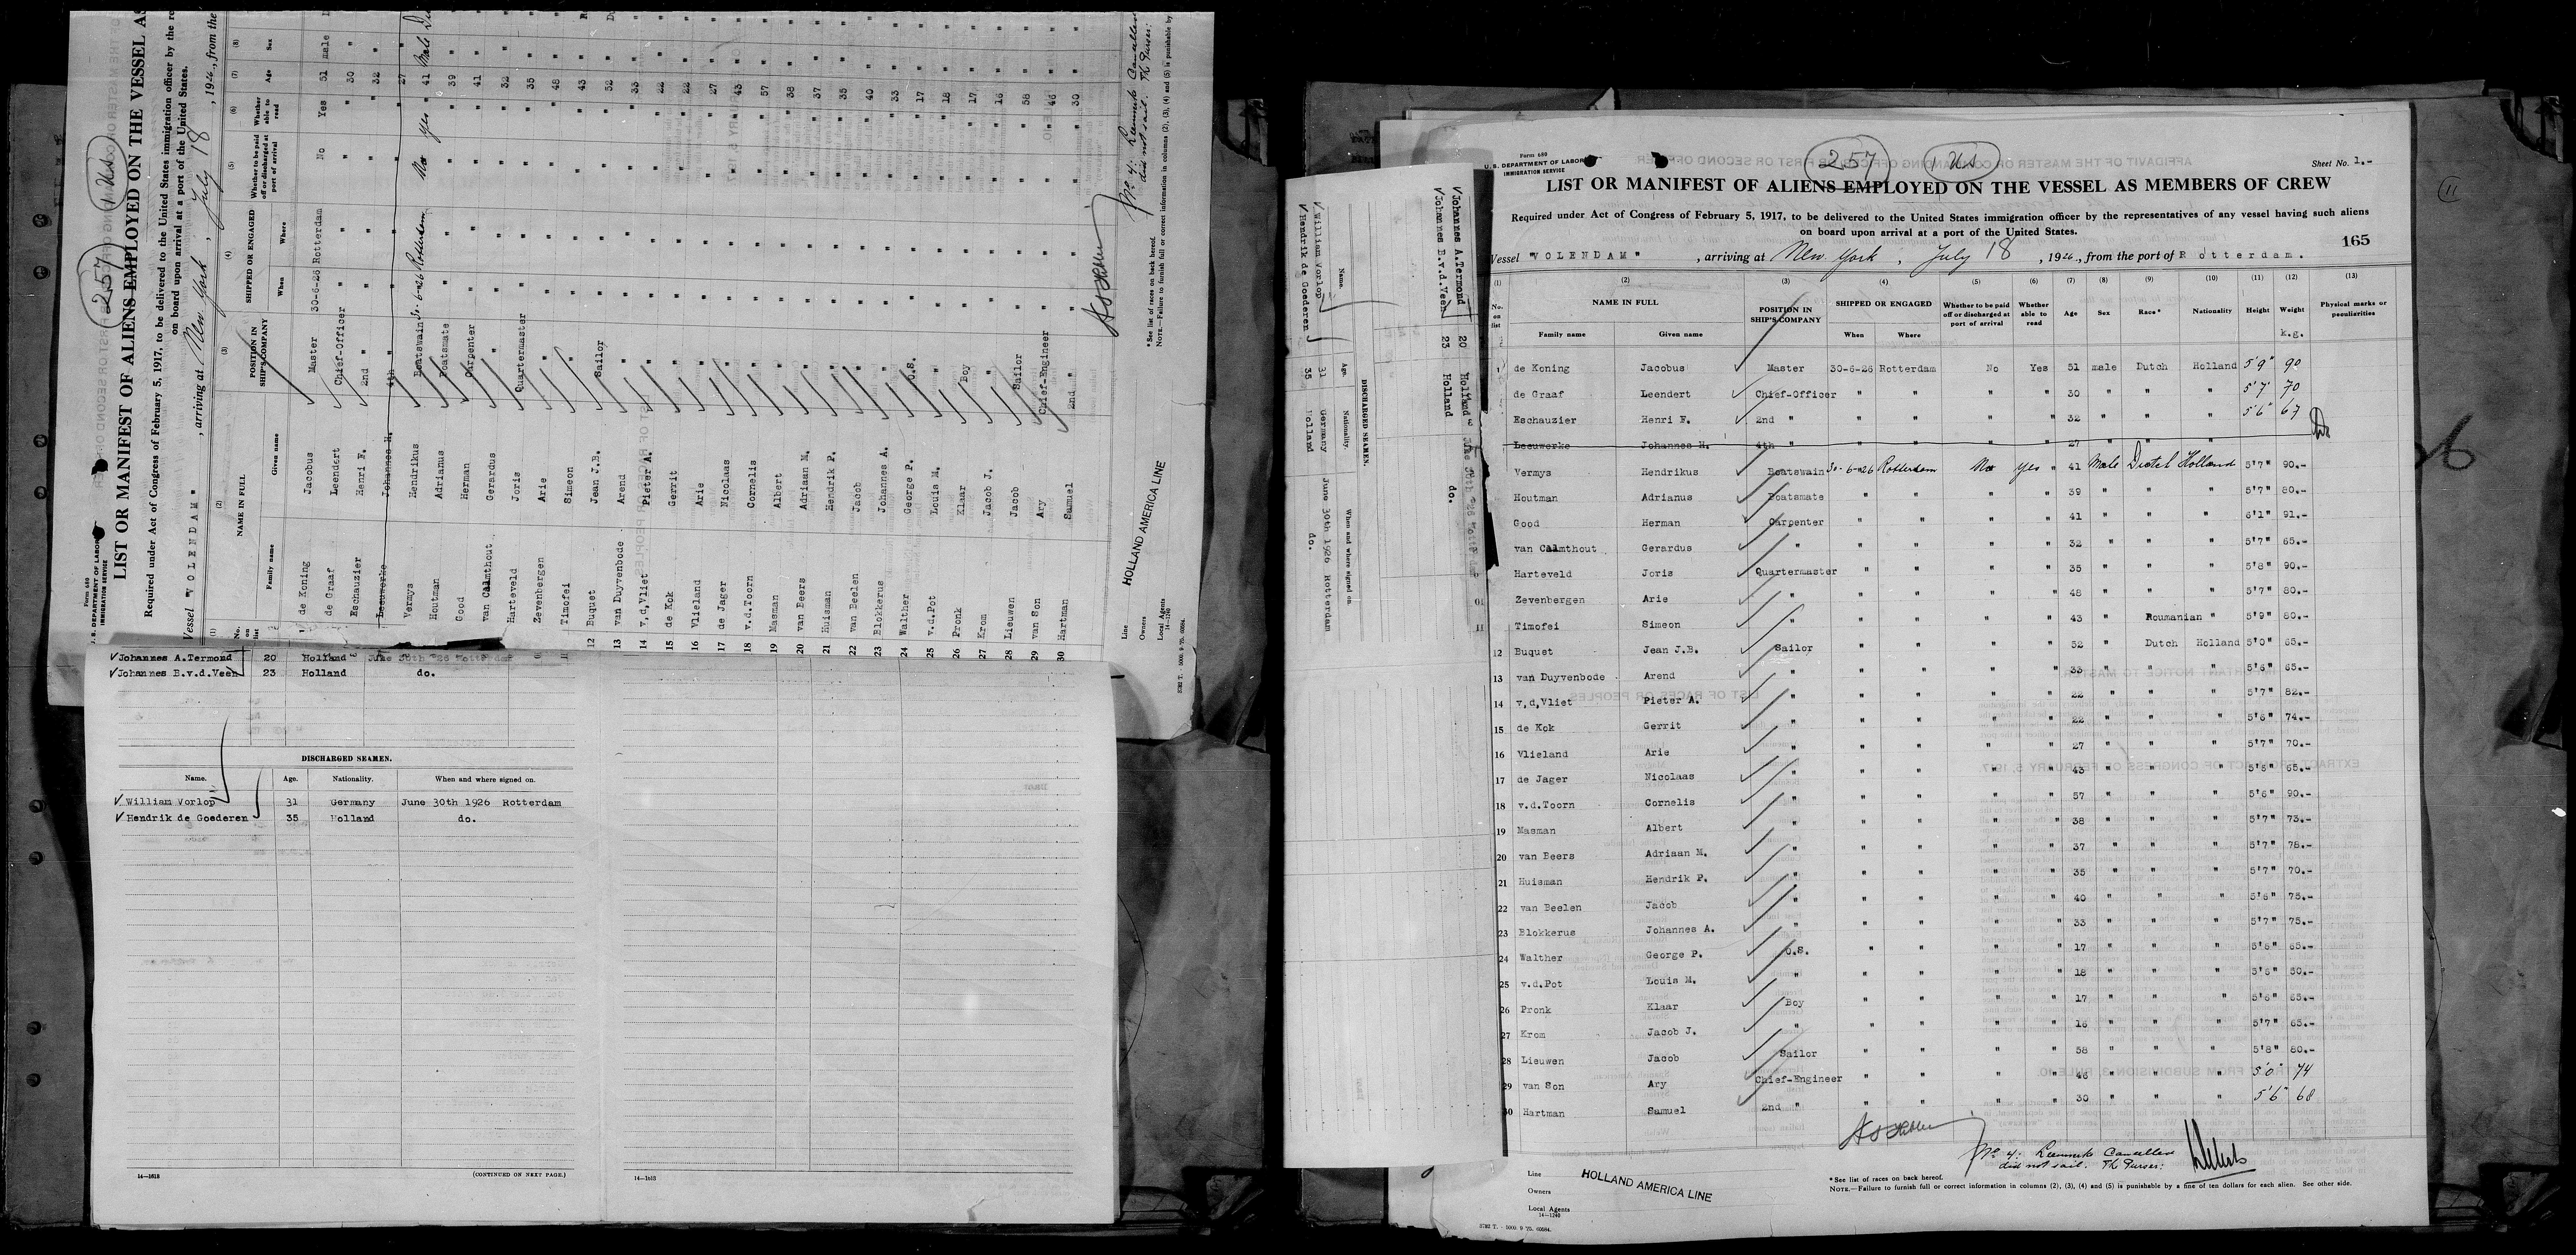 Form 689
U. S. DEPARTMENT OF LABOR
IMMIGRATION SERVICE
257
1 U.S.
LIST OR MANIFEST OF ALIENS EMPLOYED ON THE VESSEL AS
Required under Act of Congress of February 5, 1917, to be delivered to the United States immigration officer by the re
on board upon arrival at a port of the United States.
Vessel "VOLENDAM", arriving at New York, July 18, 1926, from the
(1) (2) (3) (4) (5) (6) (7) (8)
No. on list
NAME IN FULL
Family name Given name
POSITION IN SHIP'S COMPANY
SHIPPED OR ENGAGED
When Where
Whether to be paid off or discharged at port of arrival
Whether able to read
Age Sex
de Koning Jacobus Master 30-6-26 Rotterdam No Yes 51 male
de Graaf Leendert Chief-Officer " " " " 30 "
Eschauzier Henri F. 2nd " " " " " 32 "
Leeuwerke Johannes H. 4th " " " " " 27 "
Vermys Hendrikus Boatswain 30-6-26 Rotterdam No yes " 41 Male
Houtman Adrianus Boatsmate " " " " 39 "
Good Herman Carpenter " " " " 41 "
van Calmthout Gerardus " " " " " 32 "
Harteveld Joris Quartermaster " " " " 35 "
Zevenbergen Arie " " " " " 48 "
Timofei Simeon " " " " " 43 "
12 Buquet Jean J.B. Sailor " " " " 52 "
13 van Duyvenbode Arend " " " " " 33 "
14 v,d,Vliet Pieter A. " " " " " 22 "
15 de Kok Gerrit " " " " " 22 "
16 Vlieland Arie " " " " " 27 "
17 de Jager Nicolaas " " " " " 43 "
18 v.d.Toorn Cornelis " " " " " 57 "
19 Masman Albert " " " " " 38 "
20 van Beers Adriaan M. " " " " " 37 "
21 Huisman Hendrik P. " " " " " 35 "
22 van Beelen Jacob " " " " " 40 "
23 Blokkerus Johannes A. " " " " " 33 "
24 Walther George P. O.S. " " " " 17 "
25 v.d.Pot Louis M. " " " " " 18 "
26 Pronk Klaar Boy " " " " 17 "
27 Krom Jacob J. " " " " " 16 "
28 Lieuwen Jacob Sailor " " " " 58 "
29 van Son Ary Chief-Engineer " " " " 46 "
30 Hartman Samuel 2nd " " " " " 30 "
No 4: Cancelled
did not sail. The Purser:
Line
Owners
Local Agents
14—1240
HOLLAND AMERICA LINE
* See list of races on back hereof.
NOTE.—Failure to furnish full or correct information in columns (2), (3), (4) and (5) is punishable by
Johannes A.Termond 20 Holland June 30th '26 Rotterdam
Johannes B.v.d.Veen 23 Holland do.
DISCHARGED SEAMEN.
Name. Age. Nationality. When and where signed on.
William Vorlop 31 Germany June 30th 1926 Rotterdam
Hendrik de Goederen 35 Holland do.
14—1618
(CONTINUED ON NEXT PAGE.)
14—1618
Johannes A.Termond 20 Holland
Johannes B.v.d.Veen 23 Holland do.
DISCHARGED SEAMEN.
Name. Age. Nationality. When and where signed on
William Vorlop 31 Germany June 30th 1926 Rotterdam
Hendrik de Goederen 35 Holland do.
Form 689
U. S. DEPARTMENT OF LABOR
IMMIGRATION SERVICE
257
1 U.S.
Sheet No. 1.-
11
LIST OR MANIFEST OF ALIENS EMPLOYED ON THE VESSEL AS MEMBERS OF CREW
Required under Act of Congress of February 5, 1917, to be delivered to the United States immigration officer by the representatives of any vessel having such aliens
on board upon arrival at a port of the United States.
165
Vessel "VOLENDAM", arriving at New York, July 18, 1926, from the port of Rotterdam.
(1) (2) (3) (4) (5) (6) (7) (8) (9) (10) (11) (12) (13)
No. on list
NAME IN FULL
Family name Given name
POSITION IN SHIP'S COMPANY
SHIPPED OR ENGAGED
When Where
Whether to be paid off or discharged at port of arrival
Whether able to read
Age Sex Race* Nationality Height Weight
k.g.
Physical marks or peculiarities
1 de Koning Jacobus Master 30-6-26 Rotterdam No Yes 51 male Dutch Holland 5'9" 90
de Graaf Leendert Chief-Officer " " " " 30 " " " 5'7" 70
Eschauzier Henri F. 2nd " " " " " 32 " " " 5'6" 67
Leeuwerke Johannes H. 4th " " " " " 27 " " "
Vermys Hendrikus Boatswain 30-6-26 Rotterdam No yes " 41 Male Dutch Holland 5'7" 90.-
Houtman Adrianus Boatsmate " " " " 39 " " " 5'7" 80.-
Good Herman Carpenter " " " " 41 " " " 6'1" 91.-
van Calmthout Gerardus " " " " " 32 " " " 5'7" 65.-
Harteveld Joris Quartermaster " " " " 35 " " " 5'8" 90.-
Zevenbergen Arie " " " " " 48 " " " 5'7" 80.-
11 Timofei Simeon " " " " " 43 " Roumanian " 5'9" 80.-
12 Buquet Jean J.B. Sailor " " " " 52 " Dutch Holland 5'0" 65.-
13 van Duyvenbode Arend " " " " " 33 " " " 5'6" 65.-
14 v,d,Vliet Pieter A. " " " " " 22 " " " 5'7" 82.-
15 de Kok Gerrit " " " " " 22 " " " 5'6" 74.-
16 Vlieland Arie " " " " " 27 " " " 5'7" 70.-
17 de Jager Nicolaas " " " " " 43 " " " 5'6" 65.-
18 v.d.Toorn Cornelis " " " " " 57 " " " 5'6" 90.-
19 Masman Albert " " " " " 38 " " " 5'7" 73.-
20 van Beers Adriaan M. " " " " " 37 " " " 5'7" 78.-
21 Huisman Hendrik P. " " " " " 35 " " " 5'7" 70.-
22 van Beelen Jacob " " " " " 40 " " " 5'6" 75.-
23 Blokkerus Johannes A. " " " " " 33 " " " 5'7" 75.-
24 Walther George P. O.S. " " " " 17 " " " 5'6" 65.-
25 v.d.Pot Louis M. " " " " " 18 " " " 5'6" 50.-
26 Pronk Klaar Boy " " " " 17 " " " 5'6" 65.-
27 Krom Jacob J. " " " " " 16 " " " 5'7" 65.-
28 Lieuwen Jacob Sailor " " " " 58 " " " 5'8" 80.-
29 van Son Ary Chief-Engineer " " " " 46 " " " 5'0" 74
30 Hartman Samuel 2nd " " " " " 30 " " " 5'6" 68
No 4: Cancelled
did not sail. The Purser:
Line
Owners
Local Agents
14—1240
HOLLAND AMERICA LINE
* See list of races on back hereof.
NOTE.—Failure to furnish full or correct information in columns (2), (3), (4) and (5) is punishable by a fine of ten dollars for each alien. See other side.